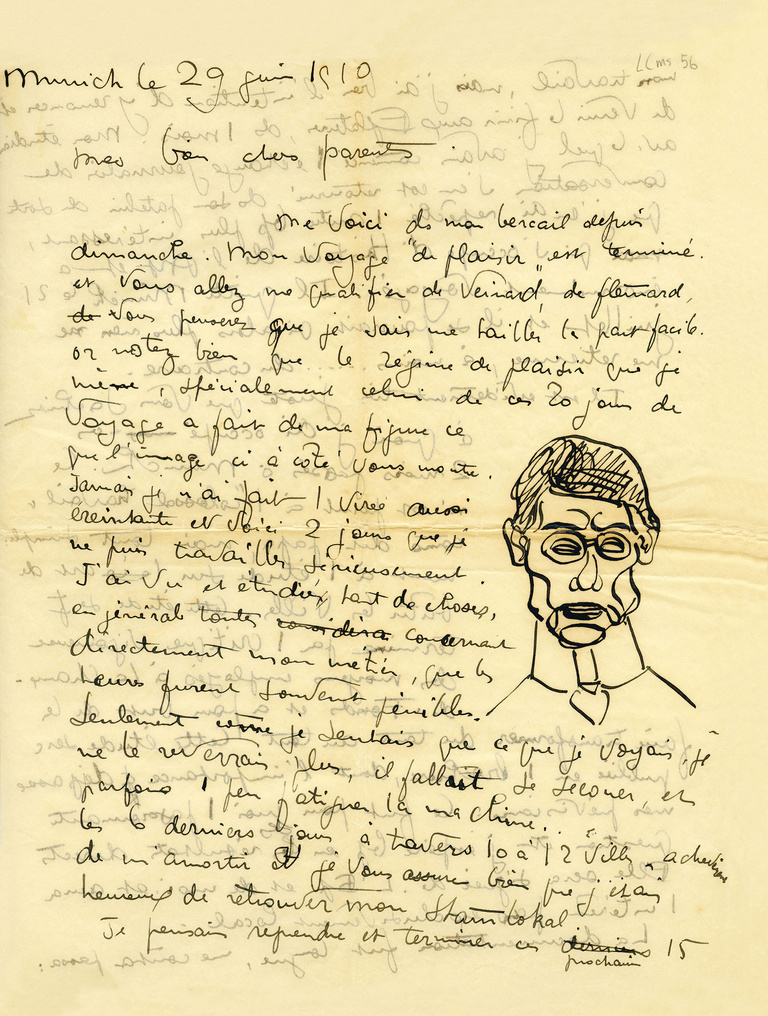 LC ms 56
Munich le 29 juin 1910
mes bien chers parents.
Me voici ds mon bercail depuis
dimanche. Mon voyage "de plaisir" est terminé.
et vous allez me qualifier de veinard, de flémard,
de vous penserez que je sais me tailler la part facile.
or notez bien que le régime de plaisir que je
mène, spécialement celui de ces 20 jours de
voyage a fait de ma figure ce
que l'image ci à côté vous montre.
Jamais je n'ai fait 1 virée aussi
éreintante et voici 2 jours que je
ne puis travailler sérieusement.
J'ai vu et étudié, tant de choses,
en général toutes concernant
directement mon métier, que les
heures furent souvent pénibles.
Seulement comme je sentais que ce que je voyais, je
ne le reverrais plus, il fallait se secouer, et
parfois 1 peu fatiguer la machine..
les 6 derniers jours à travers 10 à 12 villes achevèrent
de m'amortir et je vous assure bien que j'étais
heureux de retrouver mon Stamlokal.
Je pensais reprendre et terminer ces derniers 15
prochains